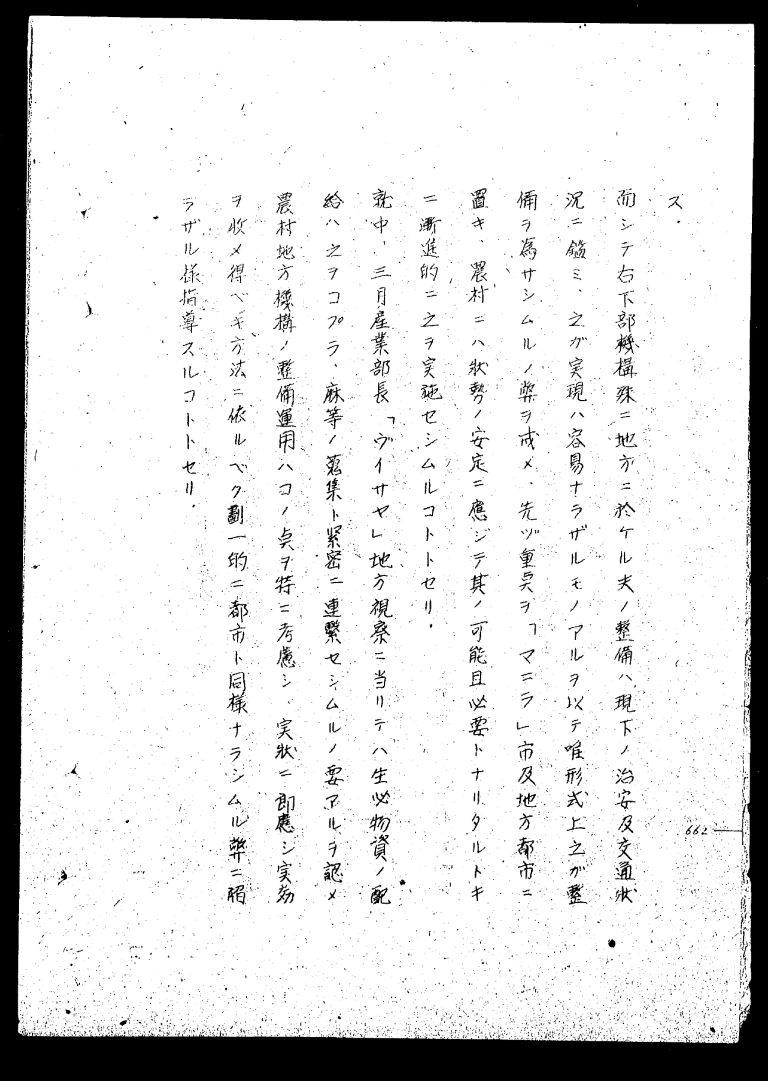 ス.
而シテ右下部機構殊ニ地方ニ於ケル夫ノ整備ハ現下ノ治安及交通狀
況ニ鑑ミ、之ガ実現ハ容易ナラザルモノアルヲ以テ唯形式上之ガ整
備ヲ為サシムルノ弊ヲ戒メ、先ヅ重点ヲ「マニラ」市及地方都市ニ
置キ、農村ニハ狀勢ノ安定ニ應ジテ其ノ可能且必要トナリタルトキ
ニ漸進的ニ之ヲ実施セシムルコトトセリ.
就中、三月産業部長「ヴイサヤ」地方視察ニ当リテハ生必物資ノ配
給ハ之ヲコプラ、麻等ノ蒐集ト緊密ニ連繫セシムルノ要アルヲ認メ
農村地方機構ノ整備運用ハコノ点ヲ特ニ考慮シ、実狀ニ即應シ実効
ヲ收メ得ベキ方法ニ依ルベク劃一的ニ都市ト同様ナラシムル弊ニ陥
ラザル様指導スルコトトセリ.
662